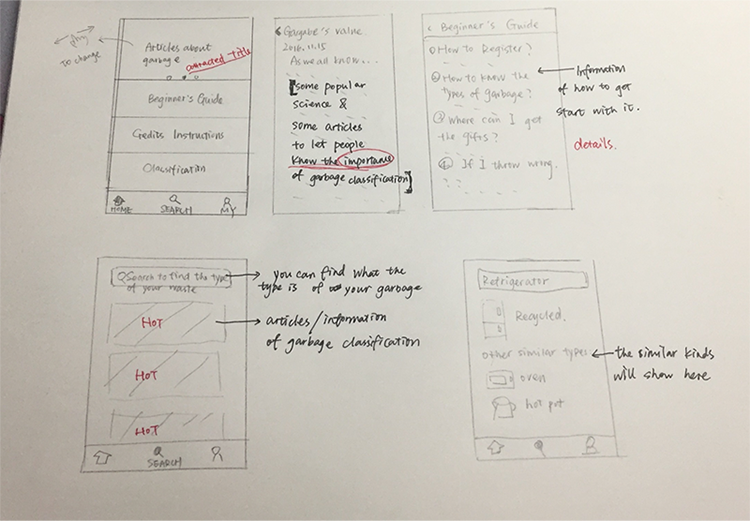 play
To change
Articles about
garbage
attracted title
Beginner's Guide
Gedits Instructions
Classification
HOME
SEARCH
MY
Gargabe's value
2016.11.15
As we all know...
[some popular
science &
some articles
to let people
know the importance
of garbage classification]
< Beginner's Guide
① How to Register?
② How to know the
types of garbage?
③ Where can I get
the gifts?
④ If I throw wrong.
Information
of how to get
start with it.
details.
Search to find the type
of your waste
HOT
HOT
HOT
SEARCH
you can find what the
type is of your garbage
articles/information
of garbage classification
Refrigerator
Recycled.
Other similar types
oven
hot pot
the similar kinds
will show here